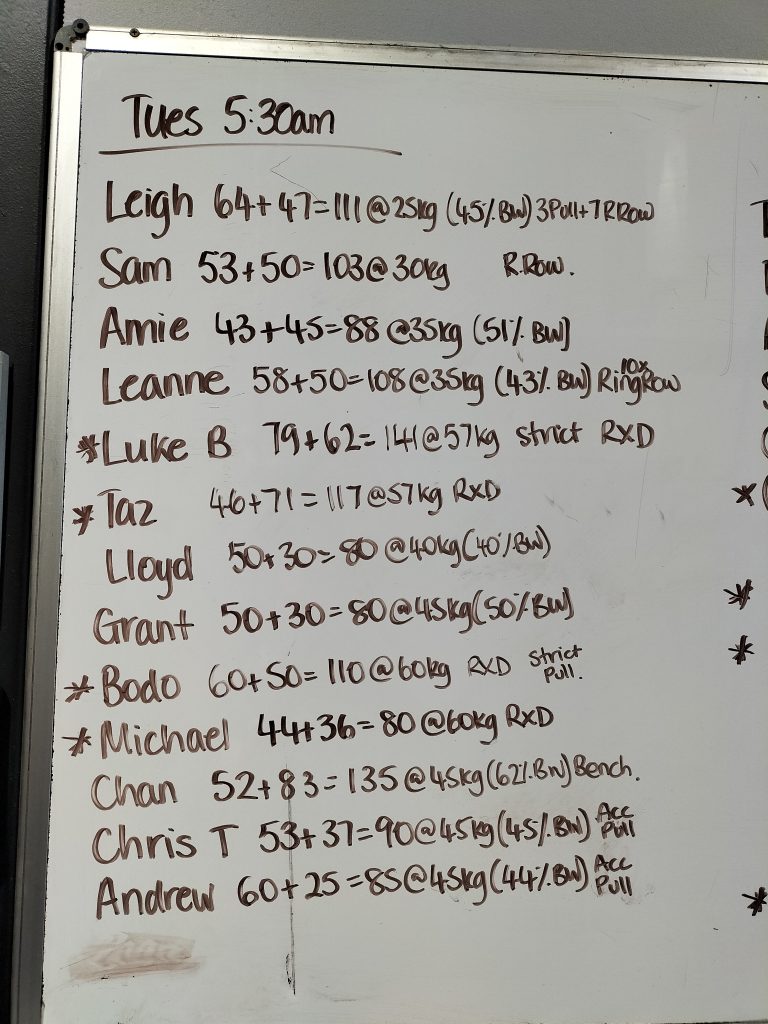 Tues 5:30am
Leigh 64+47=111@25kg (45% BW) 3Pull+7RRow
Sam 53+50=103@30kg R.Row.
Amie 43+45=88@35kg (51% BW)
Leanne 58+50=108@35kg (43% BW) 10x RingRow
*Luke B 79+62=141@57kg strict RXD
*Taz 46+71=117@57kg RXD
Lloyd 50+30=80@40kg(40% BW)
Grant 50+30=80@45kg(50% BW)
*Bodo 60+50=110@60kg RXD Strict Pull.
*Michael 44+36=80@60kg RXD
Chan 52+83=135@45kg(62% BW) Bench.
Chris T 53+37=90@45kg(45% BW) Acc Pull
Andrew 60+25=85@45kg(44% BW) Acc Pull